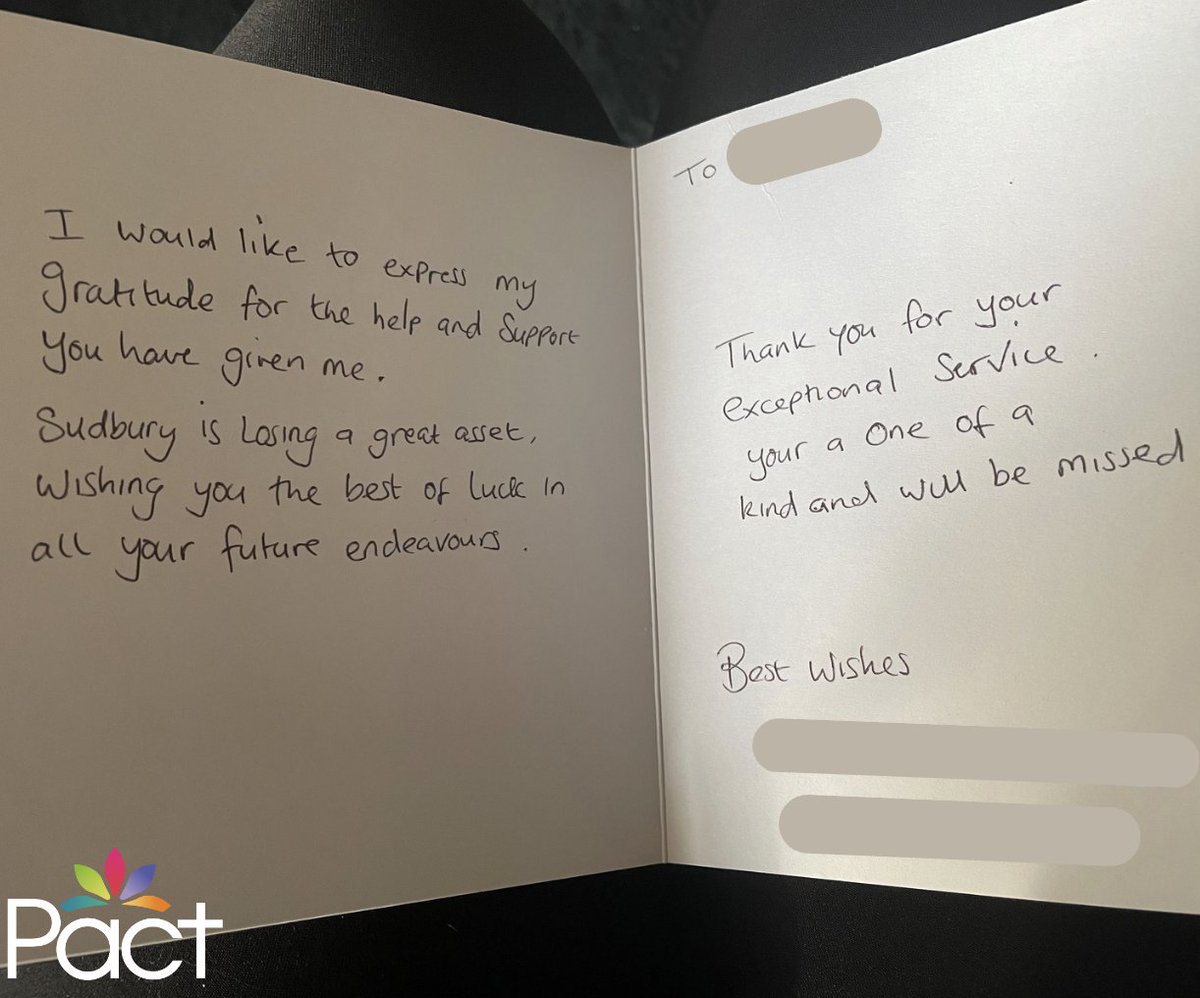 I would like to express my
gratitude for the help and Support
you have given me.
Sudbury is Losing a great asset,
Wishing you the best of luck in
all your future endeavours.
To
Thank you for your
exceptional Service.
your a One of a
kind and will be missed
Best Wishes
Pact